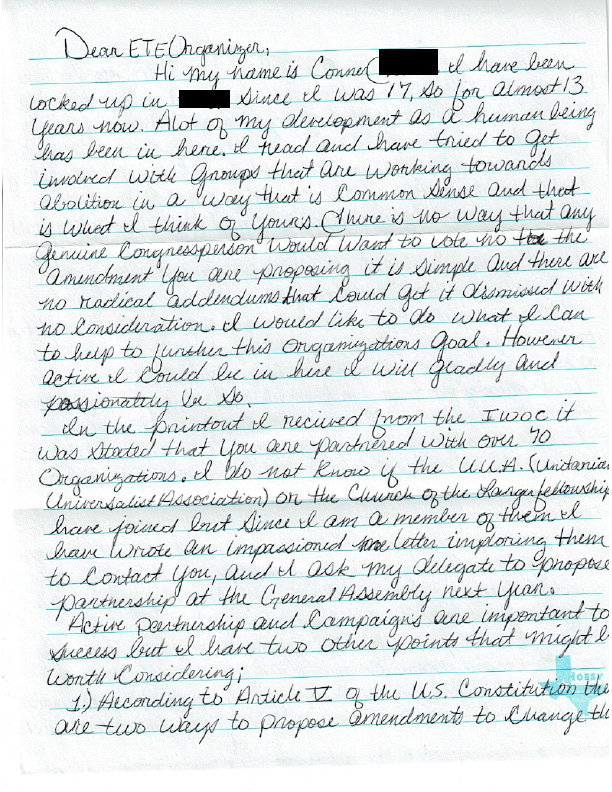 Dear ETE Organizer,
Hi my name is Conner I have been
locked up in since I was 17, so for almost 13
years now. Alot of my development as a human being
has been in here. I read and have tried to get
involved with Groups that are working towards
abolition in a way that is Common Sense and that
is what I think of Yours. There is no way that any
genuine Congressperson would want to vote no the
amendment you are proposing it is simple and there are
no radical addendums that could get it dismissed with
no consideration. I would like to do what I can
to help to further this Organizations Goal. However
active I could be in here I will gladly and
passionately be so.
In the printout I recived from the IWOC it
was stated that you are partnered with over 70
Organizations. I do not know if the U.U.A. (Unitarian
Universalist Association) or the Church of the Larger fellowship
have joined but since I am a member of them I
have wrote an impassioned letter imploring them
to contact you, and I ask my delegate to propose
partnership at the General Assembly next year.
Active partnership and Campaigns are important to
success but I have two other points that might b
worth Considering;
1.) According to Article V of the U.S. Constitution the
are two ways to propose amendments to change th
HOBBY